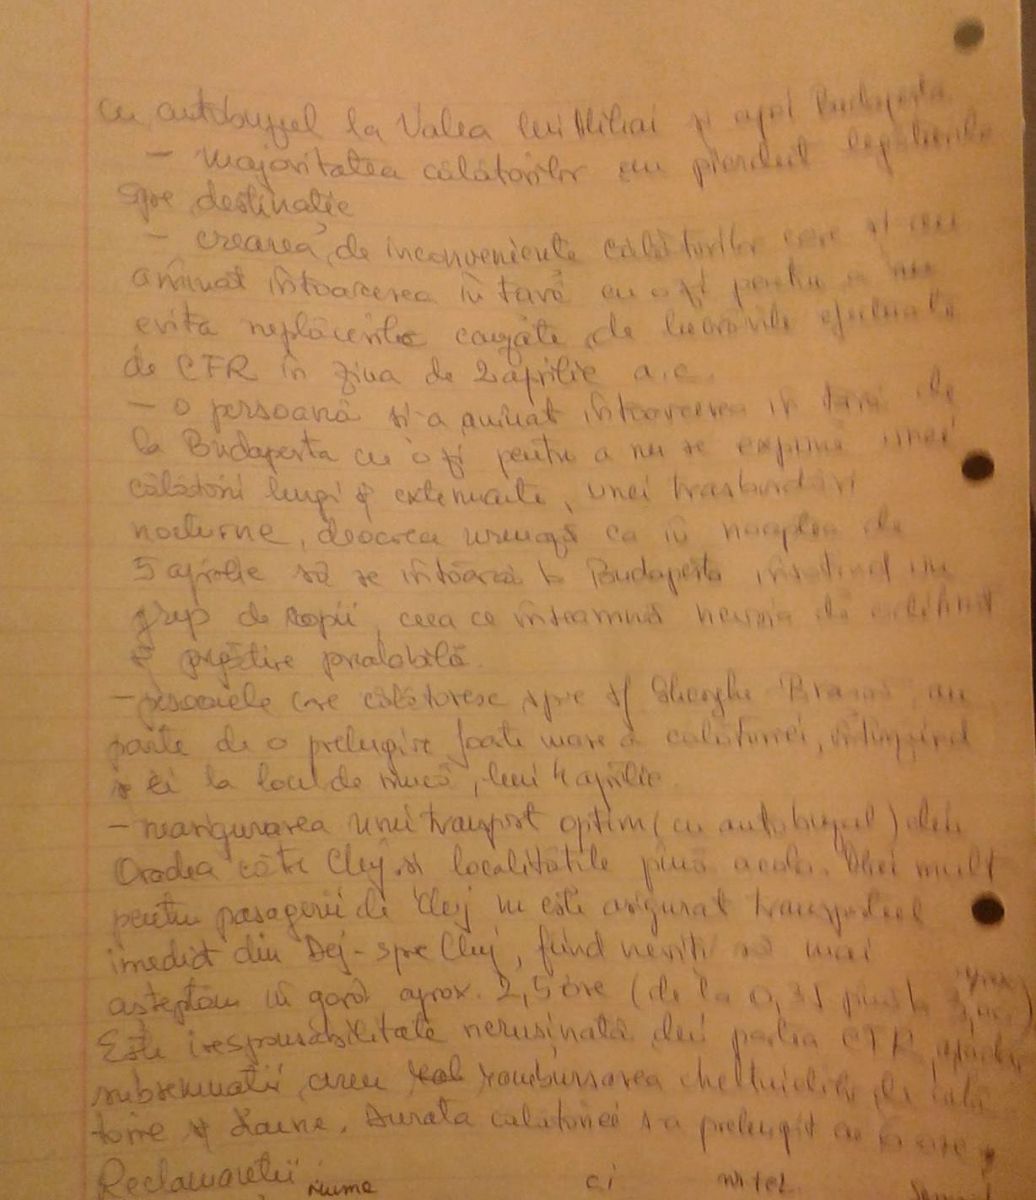 cu autobuzul la Valea lui Mihai și apoi Budapesta
– majoritatea călătorilor au pierdut legăturile
spre destinație
– crearea de inconveniente călătorilor care și-au
amînat întoarcerea în țară cu o zi pentru a
evita neplăcerile cauzate de lucrările efectuate
de CFR în ziua de 2 aprilie a.c.
– o persoană și-a amînat întoarcerea în țară de
la Budapesta cu o zi pentru a nu se expune unei
călătorii lungi și extenuante, unei trasbordări
nocturne, deoarece urmează ca în noaptea de
5 aprilie să se întoarcă la Budapesta însoțind un
grup de copii, ceea ce înseamnă nevoia de odihnă
și pregătire prealabilă.
– persoanele care călătoresc spre Sf Gheorghe Brașov au
parte de o prelungire foarte mare a călătoriei,
și ei la locul de muncă, luni 4 aprilie.
– neasigurarea unui transport optim (cu autobuzul) din
Oradea către Cluj și localitățile pînă acolo. Mai mult
pentru pasagerii de Cluj nu este asigurat transportul
imediat din Dej – spre Cluj, fiind nevoiți să mai
așteptăm în gară aprox. 2,5 ore (de la 0,35 pînă la
Este iresponsabilitate nerușinată din partea CFR,
subsemnatii, cerem rambursarea cheltuielilor de călă
torie și daune. Durata călătoriei s-a prelungit cu ore
Reclamanții nume ci nr tel.